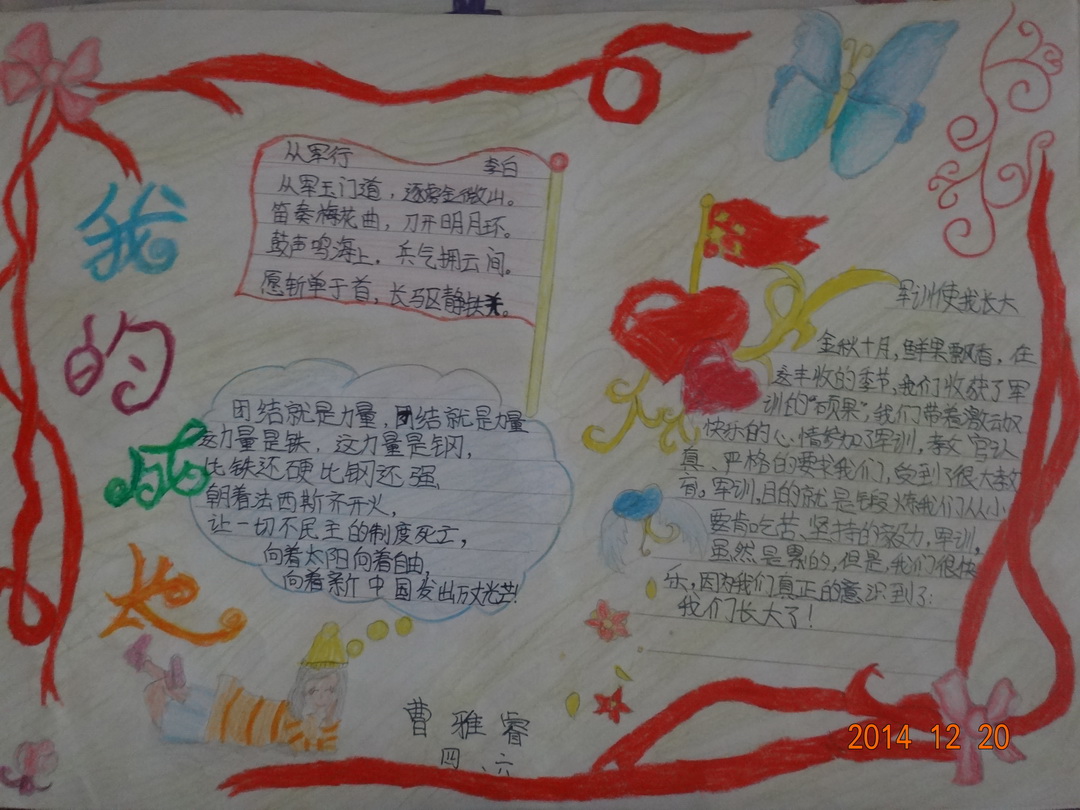 我的成长
从军行
李白
从军玉门道，逐虏金微山。
笛奏梅花曲，刀开明月环。
鼓声鸣海上，兵气拥云间。
愿斩单于首，长驱静铁关。
团结就是力量，团结就是力量
这力量是铁，这力量是钢，
比铁还硬比钢还强
朝着法西斯齐开火，
让一切不民主的制度死亡，
向着太阳向着自由，
向着新中国发出万丈光芒！
军训使我长大
金秋十月，鲜果飘香，在
这丰收的季节，我们收获了军
训的“硕果”，我们带着激动又
快乐的心情参加了军训，教官认
真、严格的要求我们，受到了很大教
育。军训，目的就是锻炼我们从小
要肯吃苦、坚持的毅力，军训，
虽然是累的，但是，我们很快
乐，因为我们真正的意识到了：
我们长大了！
曹雅睿
四、六
2014 12 20